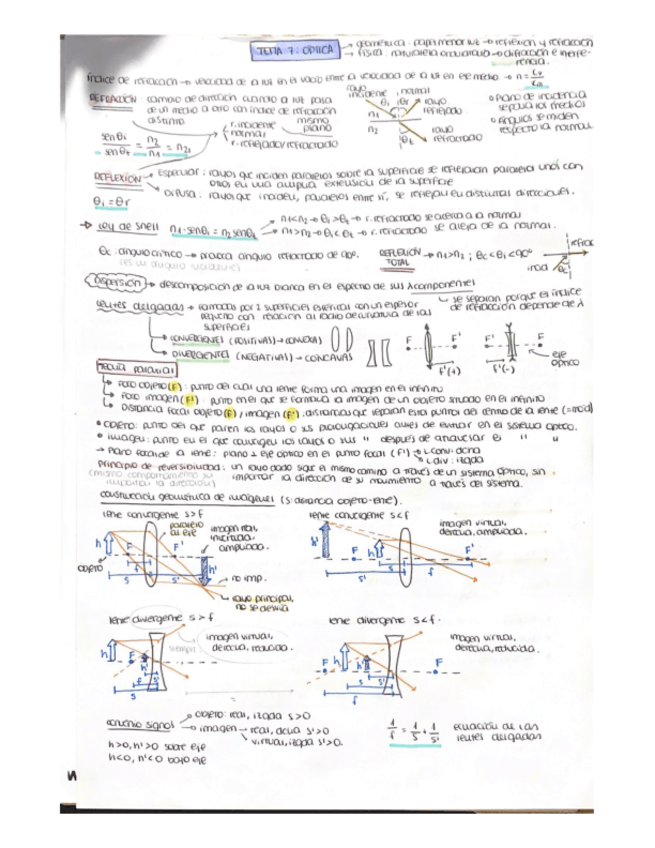 TEMA 7: ÓPTICA
→ geométrica: papel menor luz → reflexión y refracción
→ física: naturaleza ondulatoria → difracción e interferencia.
Índice de refracción → velocidad de la luz en el vacío entre la velocidad de la luz en ese medio → n =
REFRACCIÓN: cambio de dirección cuando la luz pasa
de un medio a otro con índice de refracción
distinto.
r. incidente
normal
r. reflejado/refractado
mismo
plano
sen θi / sen θt = n2 / n1 = n21
rayo
incidente
normal
θi θr
rayo
reflejado
n1
n2
θt
rayo
refractado
Plano de incidencia
separa los medios
ángulos se miden
respecto la normal
REFLEXIÓN
Especular: rayos que inciden paralelos sobre la superficie se reflejarán paralelos unos con
otros en una amplia extensión de la superficie
Difusa: rayos que inciden, paralelos entre sí, se reflejan en distintas direcciones.
θi = θr
→ Ley de Snell n1·senθi = n2senθt
n1<n2 → θi>θt → r. refractado se acerca a la normal
n1>n2 → θi<θt → r. refractado se aleja de la normal.
θc: ángulo crítico → provoca ángulo refractado de 90º.
(es un ángulo incidente)
REFLEXIÓN
TOTAL → n1>n2 ; θc<θi<90º
refrac
incid
θc
Dispersión → descomposición de la luz blanca en el espectro de sus λ componentes
se separan porque el índice
de refracción depende de λ
Lentes delgadas → formadas por 2 superficies esféricas con un espesor
pequeño con relación al radio de curvatura de las
superficies
→ CONVERGENTES (POSITIVAS) → CONVEXAS
→ DIVERGENTES (NEGATIVAS) → CÓNCAVAS
F F'
f'(+)
F' F
f'(-)
eje
óptico
Teoría paraxial
→ Foco objeto (F): punto del cual una lente forma una imagen en el infinito
→ Foco imagen (F'): punto en el que se formula la imagen de un objeto situado en el infinito
→ Distancia focal objeto (f) / imagen (f'): distancias que separan estos puntos del centro de la lente
• Objeto: punto del que parten los rayos o sus prolongaciones antes de entrar en el sistema óptico.
• Imagen: punto en el que convergen los rayos o sus " después de atravesar el " "
→ Plano focal de la lente: plano ⊥ eje óptico en el punto focal (F')
L. conv: dcha
L. div: izqda
Principio de reversibilidad: un rayo dado sigue el mismo camino a través de un sistema óptico, sin
(mismo comportamiento sin
importar la dirección)
importar la dirección de su movimiento a través del sistema.
Construcción geométrica de imágenes (s: distancia objeto-lente).
lente convergente s>f
paralelo
al eje
imagen real,
invertida,
ampliada.
h
F
F'
f
s
s'
h'
objeto
no imp.
rayo principal,
no se desvía
lente convergente s<f
imagen virtual,
derecha, ampliada.
h'
F
h
F'
s
f
s'
lente divergente s>f
siempre
imagen virtual,
derecha, reducida.
h
F
h'
f
s'
s
lente divergente s<f.
imagen virtual,
derecha, reducida.
F
h
h'
F
s
s'
f
convenio signos
→ objeto: real, izqda s>0
→ imagen → real, dcha s'>0
virtual, izqda s'>0.
h>0, h'>0 sobre eje
h<0, h'<0 bajo eje
1/f = 1/s + 1/s'
ecuación de las
lentes delgadas